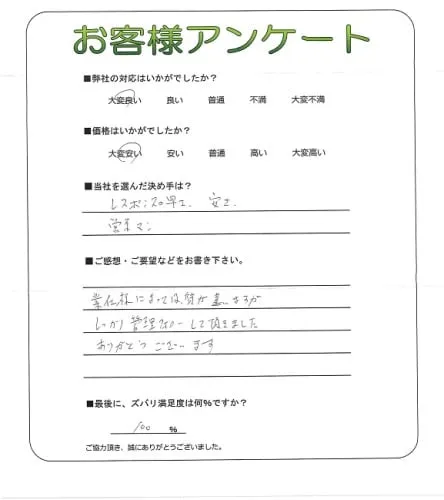 お客様アンケート
■弊社の対応はいかがでしたか?
大変良い 良い 普通 不満 大変不満
■価格はいかがでしたか?
大変安い 安い 普通 高い 大変高い
■当社を選んだ決め手は?
レスポンスの早さ、安さ、
営業マン
■ご感想・ご要望などをお書き下さい。
業者様によっては、質が悪い
しっかり管理
ありがとうございます
■最後に、ズバリ満足度は何%ですか?
100 %
ご協力頂き、誠にありがとうございました。